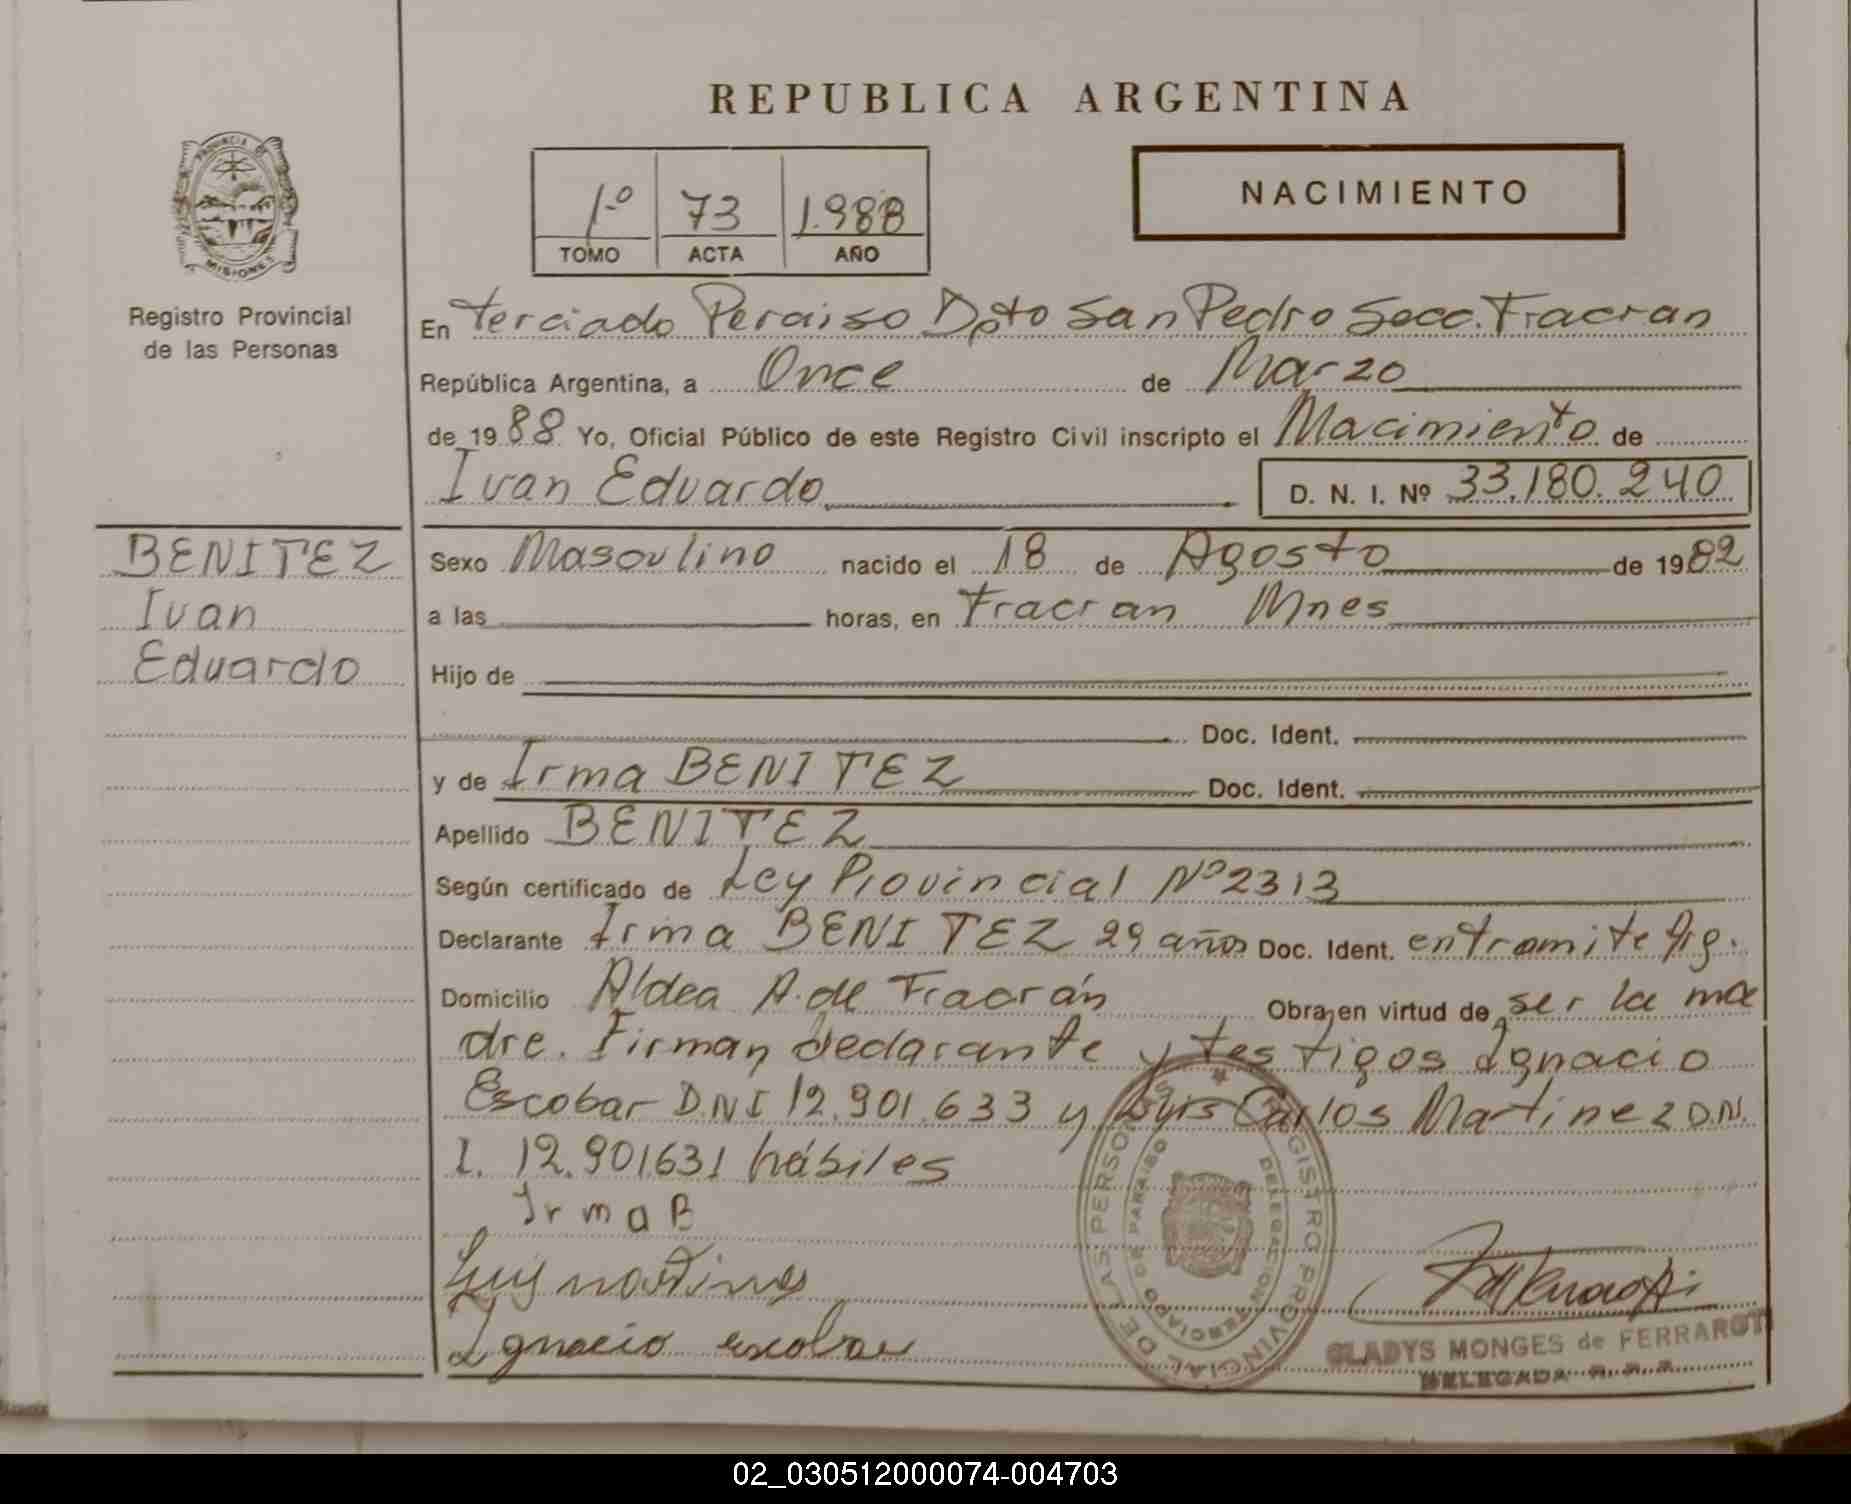 REPUBLICA ARGENTINA
PROVINCIA DE
MISIONES
Registro Provincial
de las Personas
1º 73 1.988
TOMO ACTA AÑO
NACIMIENTO
En Terciado Peraiso Dpto San Pedro Secc. Fracran
República Argentina, a Once de Marzo
de 1988 Yo, Oficial Público de este Registro Civil inscripto el Nacimiento de
Ivan Eduardo D. N. I. Nº 33.180.240
BENITEZ
Ivan
Eduardo
Sexo Masculino nacido el 18 de Agosto de 1982
a las horas, en Fracran Mnes
Hijo de
Doc. Ident.
y de Irma BENITEZ Doc. Ident.
Apellido BENITEZ
Según certificado de Ley Provincial Nº 2313
Declarante Irma BENITEZ 29 años Doc. Ident. entramite Arg.
Domicilio Aldea A. de Fracrán Obra en virtud de ser la ma
dre. Firman declarante y testigos Ignacio
Escobar D.N.I 12.901.633 y Luis Carlos Martinez D.N.
I. 12.901.631 hábiles
Irma B
Luis martines
Ignacio escobar
REGISTRO PROVINCIAL DE LAS PERSONAS
DELEGACION TERCIADO DE PARAISO
GLADYS MONGES de FERRAROTI
DELEGADA
02_030512000074-004703